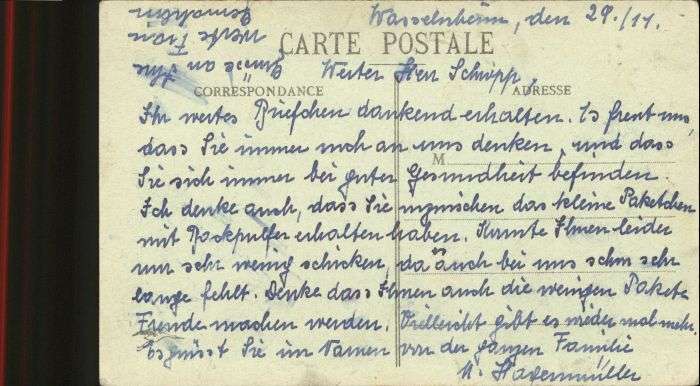 Wasselnheim, den 29./11.
Grüße an Ihre
werte Frau
Gemahlin
CARTE POSTALE
Werter Herr Schöpp,
CORRESPONDANCE
ADRESSE
M
Ihr wertes Briefchen dankend erhalten. Es freut uns
dass Sie immer noch an uns denken, und dass
Sie sich immer bei guter Gesundheit befinden.
Ich denke auch, dass Sie inzwischen das kleine Paketchen
mit Backpulfer erhalten haben. Konnte Ihnen leider
nur sehr wenig schicken, da auch bei uns schon sehr
lange fehlt. Denke dass Ihnen auch die wenigen Pakete
Freude machen werden. Vielleicht gibt es wieder mal mehr
Es grüsst Sie im Namen von der ganzen Familie